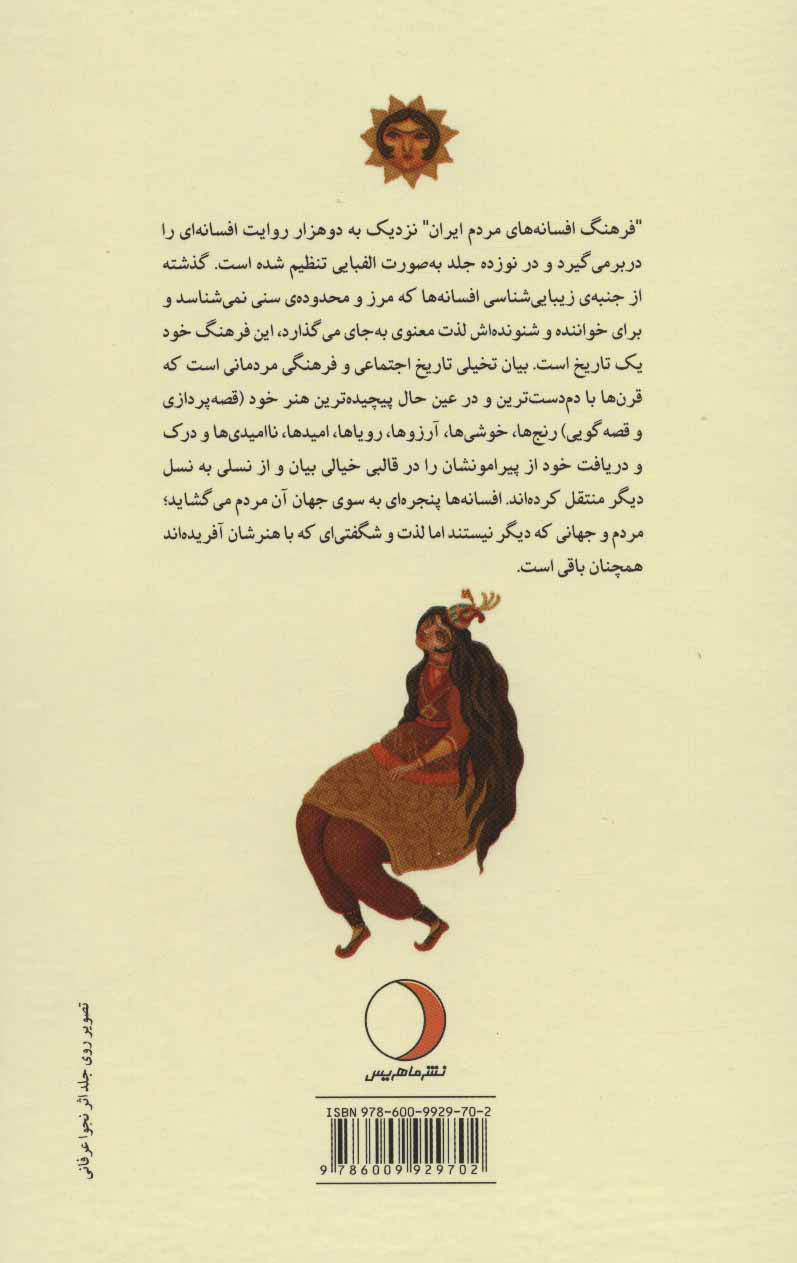 "فرهنگ افسانه‌های مردم ایران" نزدیک به دوهزار روایت افسانه‌ای را
دربرمی‌گیرد و در نوزده جلد به‌صورت الفبایی تنظیم شده است. گذشته
از جنبه‌ی زیبایی‌شناسی افسانه‌ها که مرز و محدوده‌ی سنی نمی‌شناسد و
برای خواننده و شنونده‌اش لذت معنوی به‌جای می‌گذارد، این فرهنگ خود
یک تاریخ است. بیان تخیلی تاریخ اجتماعی و فرهنگی مردمانی است که
قرن‌ها با دم‌دست‌ترین و در عین حال پیچیده‌ترین هنر خود (قصه‌پردازی
و قصه‌گویی) رنج‌ها، خوشی‌ها، آرزوها، رویاها، امیدها، ناامیدی‌ها و درک
و دریافت خود از پیرامونشان را در قالبی خیالی بیان و از نسلی به نسل
دیگر منتقل کرده‌اند. افسانه‌ها پنجره‌ای به سوی جهان آن مردم می‌گشاید؛
مردم و جهانی که دیگر نیستند اما لذت و شگفتی‌ای که با هنرشان آفریده‌اند
همچنان باقی است.
نشر ماهریس
ISBN 978-600-9929-70-2
9 786009 929702
تصویر روی جلد اثر نجوا عرفانی